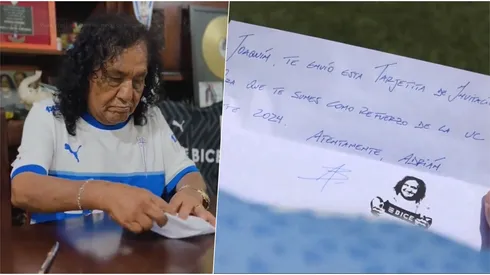 BICE
JOAQUÍN, TE ENVÍO ESTA TARJETITA DE INVITACI
RA QUE TE SUMES COMO REFUERZO DE LA UC
TE 2024
ATENTAMENTE, ADRIÁN
BICE